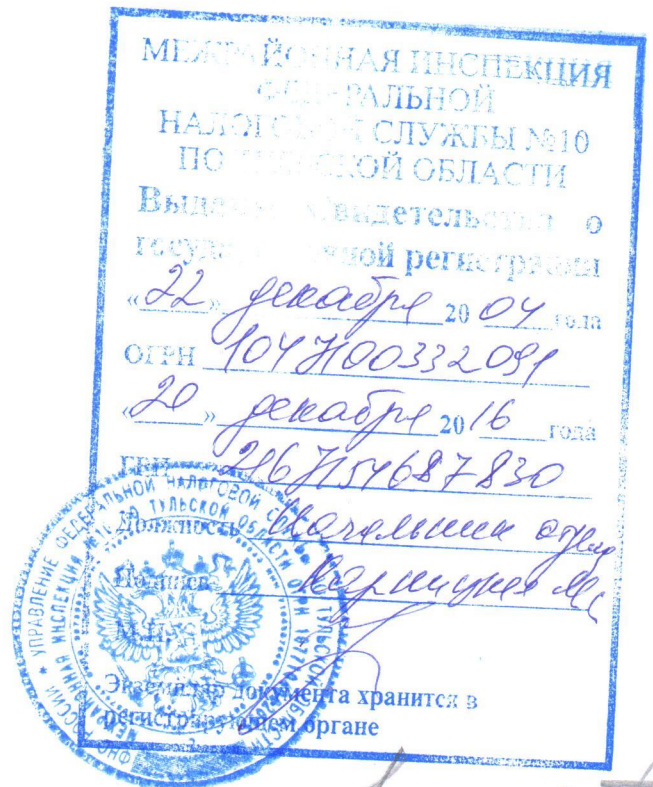 МЕЖРАЙОННАЯ ИНСПЕКЦИЯ
ФЕДЕРАЛЬНОЙ
НАЛОГОВОЙ СЛУЖБЫ №10
ПО ТУЛЬСКОЙ ОБЛАСТИ
Выданы Свидетельства о
государственной регистрации
«22» декабря 2004 года
ОГРН 1047100332091
«20» декабря 2016 года
ГРН 2167154687830
Должность Начальник отдела
Подпись
М.П.
Экземпляр документа хранится в
регистрирующем органе
УПРАВЛЕНИЕ ФЕДЕРАЛЬНОЙ НАЛОГОВОЙ ТУЛЬСКОЙ ОБЛАСТИ
ФНС РОССИИ
МЕЖРАЙОННАЯ ИНСПЕКЦИЯ ПО ТУЛЬСКОЙ ОБЛАСТИ